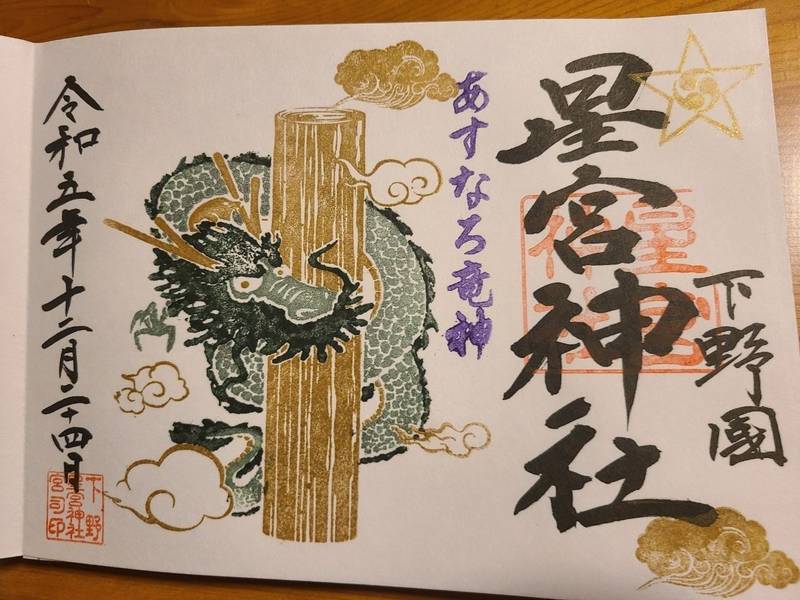 下野國
星宮神社
星宮
神社
あすなろ竜神
令和五年十二月二十四日
下野
星宮神社
宮司印